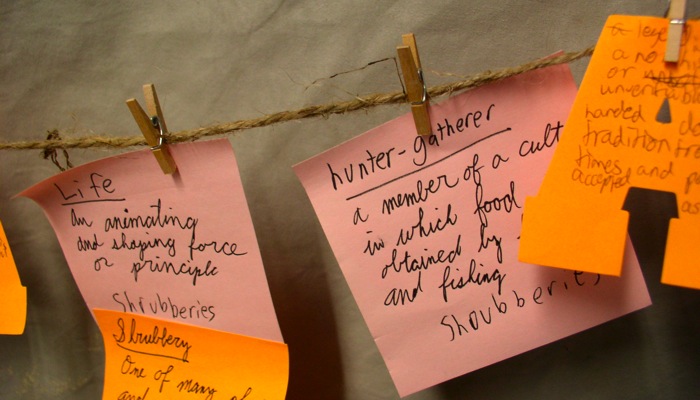 Life
An animating
and shaping force
or principle
Shrubberies
Shrubbery
One of many
and
hunter-gatherer
a member of a cult
in which food
obtained by
and fishing
Shoubberies
a no
or
unverifiable
handed
tradition
times and
accepted